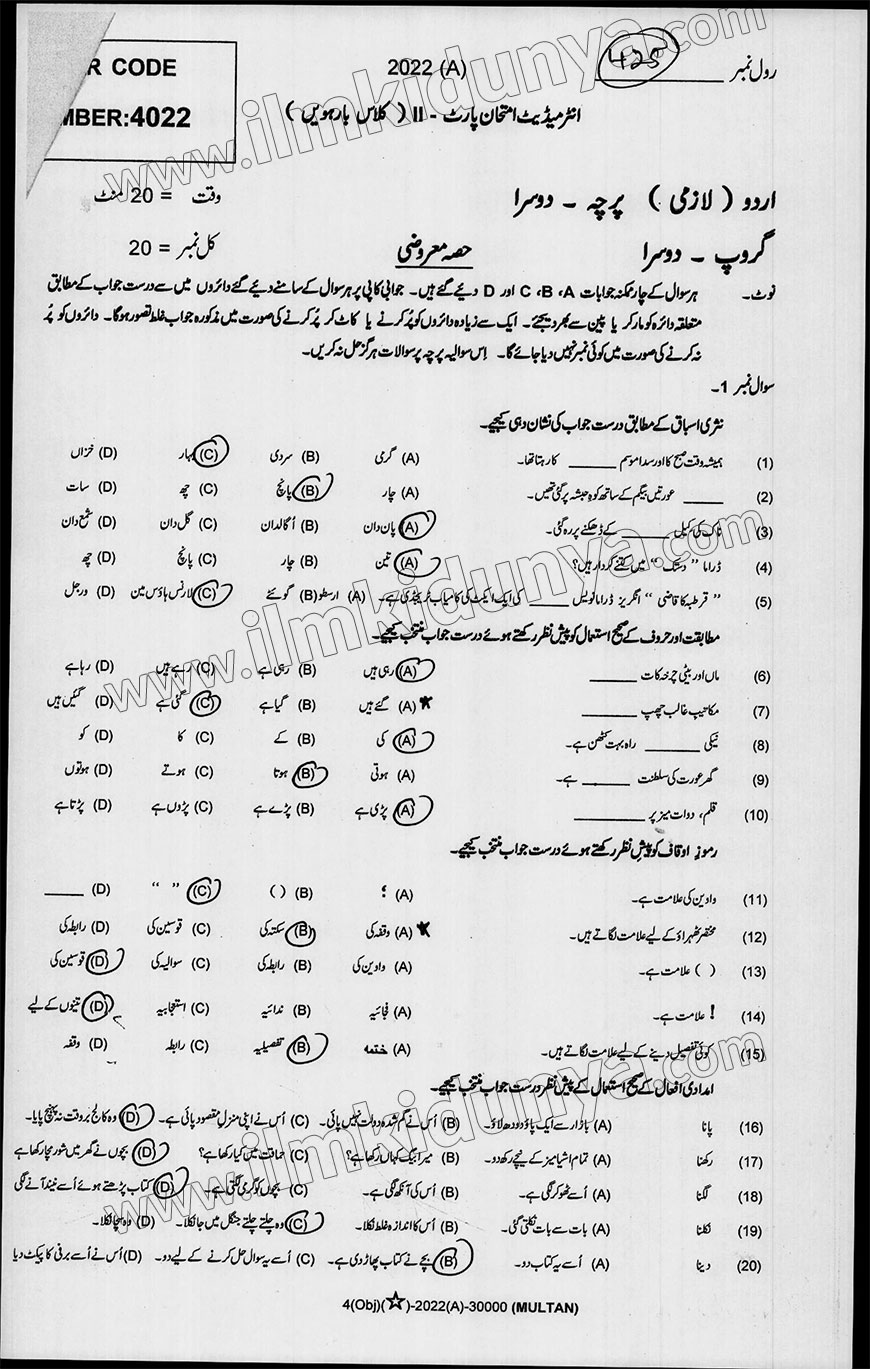 رول نمبر ________ 425
2022 (A)
R CODE
MBER:4022
انٹرمیڈیٹ امتحان پارٹ - II ( کلاس بارہویں )
اردو ( لازمی ) پرچہ - دوسرا وقت = 20 منٹ
گروپ - دوسرا حصہ معروضی کل نمبر = 20
نوٹ۔ ہر سوال کے چار ممکنہ جوابات C ،B ،A اور D دیئے گئے ہیں۔ جوابی کاپی پر ہر سوال کے سامنے دیئے گئے دائروں میں سے درست جواب کے مطابق
متعلقہ دائرہ کو مارکر یا پین سے بھر دیجئے۔ ایک سے زیادہ دائروں کو پُر کرنے یا کاٹ کر پُر کرنے کی صورت میں مذکورہ جواب غلط تصور ہوگا۔ دائروں کو پُر
نہ کرنے کی صورت میں کوئی نمبر نہیں دیا جائے گا۔ اِس سوالیہ پرچہ پر سوالات ہرگز حل نہ کریں۔
سوال نمبر 1۔
نثری اسباق کے مطابق درست جواب کی نشان دہی کیجیے۔
(1) ہمیشہ وقت صبح کا اور سدا موسم ______ کا رہتا تھا۔ (A) گرمی (B) سردی (C) بہار (D) خزاں
(2) ______ عورتیں بیگم کے ساتھ کوہِ حبشہ پر گئی تھیں۔ (A) چار (B) پانچ (C) چھ (D) سات
(3) ناک کی کیل ______ کے ڈھکنے پر رہ گئی۔ (A) پان دان (B) اُگالدان (C) گل دان (D) شمع دان
(4) ڈراما " دستک " میں کتنے کردار ہیں؟ (A) تین (B) چار (C) پانچ (D) چھ
(5) " قرطبہ کا قاضی " انگریز ڈراما نویس ______ کی ایک ایکٹ کی کامیاب ٹریجڈی ہے۔ (A) ارسطو (B) گوئٹے (C) لارنس ہاؤس مین (D) ورجل
مطابقت اور حروف کے صحیح استعمال کو پیش نظر رکھتے ہوئے درست جواب منتخب کیجیے۔
(6) ماں اور بیٹی چرخہ کات ______ (A) رہی ہیں (B) رہی ہے (C) رہے ہیں (D) رہا ہے
(7) مکاتیب غالب چھپ ______ (A) گئے ہیں (B) گیا ہے (C) گئی ہے (D) گئیں ہیں
(8) نیکی ______ راہ بہت کٹھن ہے۔ (A) کی (B) کے (C) کا (D) کو
(9) گھر عورت کی سلطنت ______ ہے۔ (A) ہوتی (B) ہوتا (C) ہوتے (D) ہوتوں
(10) قلم، دوات میز پر ______ (A) پڑی ہے (B) پڑے ہے (C) پڑوں ہے (D) پڑتا ہے
رموزِ اوقاف کو پیشِ نظر رکھتے ہوئے درست جواب منتخب کیجیے۔
(11) واوین کی علامت ہے۔ (A) ؛ (B) ( ) (C) " " (D) ____
(12) مختصر ٹھہراؤ کے لیے علامت لگاتے ہیں۔ (A) وقفہ کی (B) سکتہ کی (C) قوسین کی (D) رابطہ کی
(13) ( ) علامت ہے۔ (A) واوین کی (B) رابطہ کی (C) سوالیہ کی (D) قوسین کی
(14) ! علامت ہے۔ (A) فجائیہ (B) ندائیہ (C) استعجابیہ (D) تینوں کے لیے
(15) کوئی تفصیل دینے کے لیے علامت لگاتے ہیں۔ (A) ختمہ (B) تفصیلیہ (C) رابطہ (D) وقفہ
امدادی افعال کے صحیح استعمال کے پیش نظر درست جواب منتخب کیجیے۔
(16) پانا (A) بازار سے ایک پاؤ دودھ لاؤ۔ (B) اُس نے گم شدہ دولت نہیں پائی۔ (C) اُس نے اپنی منزلِ مقصود پائی ہے۔ (D) وہ کالج بروقت نہ پہنچ پایا۔
(17) رکھنا (A) تمام اشیا میز کے نیچے رکھ دو۔ (B) میرا بیگ کہاں رکھا ہے؟ (C) حماقت میں کیا رکھا ہے؟ (D) بچوں نے گھر میں شور مچا رکھا ہے
(18) لگنا (A) اُسے ٹھوکر لگی ہے۔ (B) اُس کی آنکھ لگی ہے۔ (C) بچوں کو گرمی لگتی ہے۔ (D) کتاب پڑھتے ہوئے اُسے نیند آنے لگی
(19) نکلنا (A) بات سے بات نکلتی گئی۔ (B) اُس کا اندازہ غلط نکلا۔ (C) وہ چلتے چلتے جنگل میں جا نکلا۔ (D) وہ سچا نکلا۔
(20) دینا (A) اُسے یہ کتاب دو۔ (B) بچے نے کتاب پھاڑ دی ہے۔ (C) اُسے یہ سوال حل کرنے کے لیے دو۔ (D) اُس نے اُسے برفی کا پیکٹ دیا
4(Obj)(☆)-2022(A)-30000 (MULTAN)
www.ilmkidunya.com
www.ilmkidunya.com
www.ilmkidunya.com